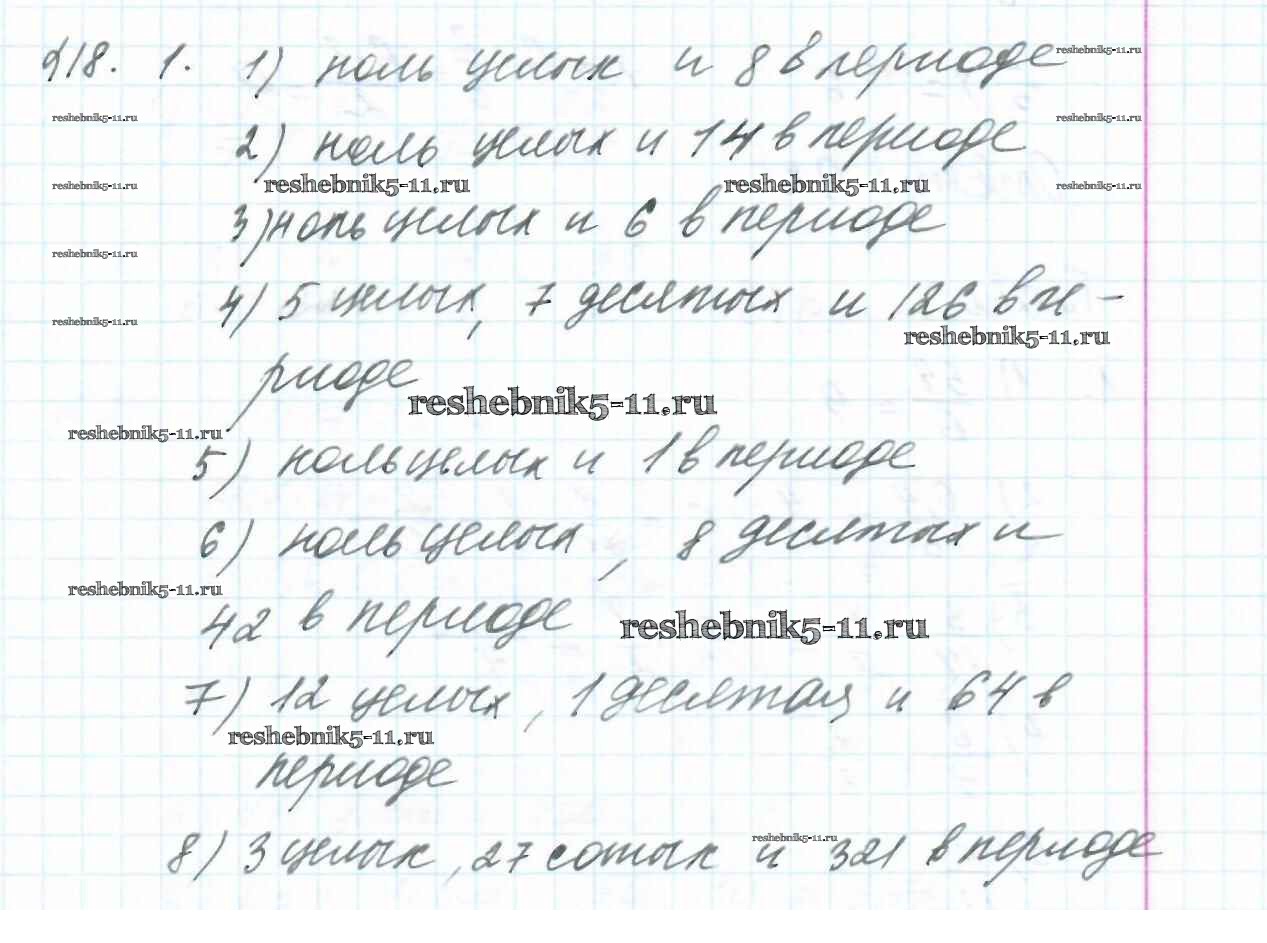 §18. 1. 1) ноль целых и 8 в периоде reshebnik5-11.ru
reshebnik5-11.ru reshebnik5-11.ru
2) ноль целых и 14 в периоде
reshebnik5-11.ru reshebnik5-11.ru reshebnik5-11.ru reshebnik5-11.ru
3) ноль целых и 6 в периоде
reshebnik5-11.ru
4) 5 целых, 7 десятых и 126 в пе-
reshebnik5-11.ru reshebnik5-11.ru
риоде
reshebnik5-11.ru
reshebnik5-11.ru
5) ноль целых и 1 в периоде
6) ноль целых, 8 десятых и
reshebnik5-11.ru
42 в периоде reshebnik5-11.ru
7) 12 целых, 1 десятая и 64 в
reshebnik5-11.ru
периоде
reshebnik5-11.ru
8) 3 целых, 27 сотых и 321 в периоде